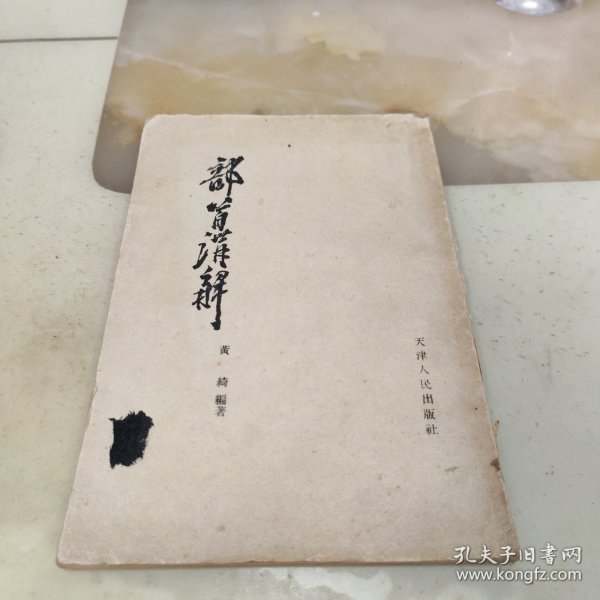 部首講解
黃 綺 編著
天津人民出版社
孔夫子旧书网
www.kongfz.com